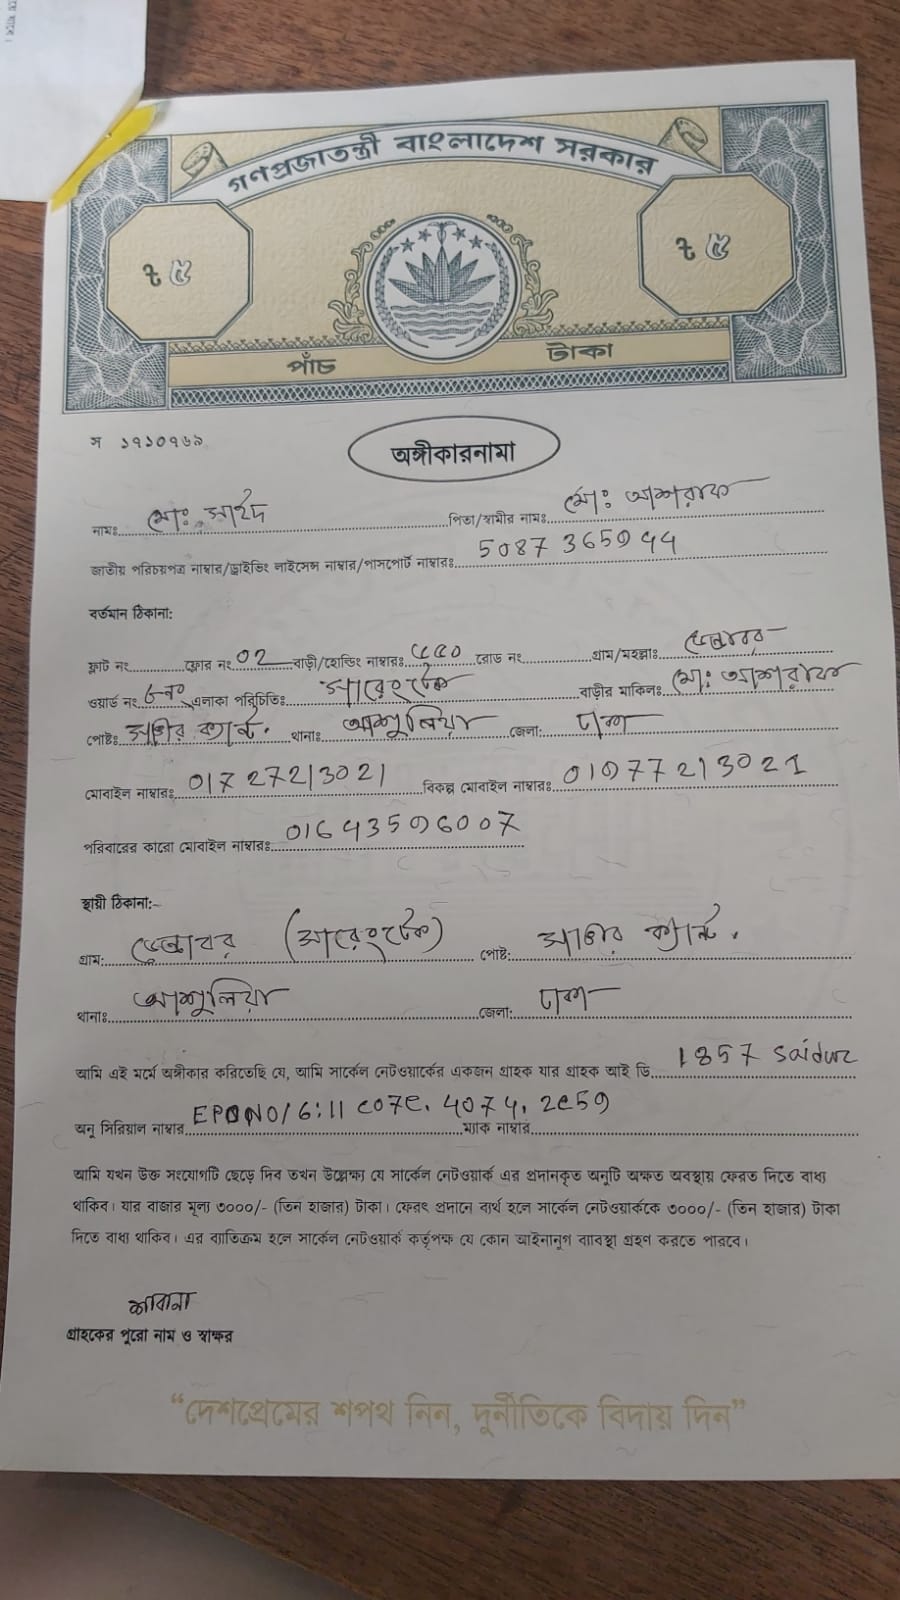 গণপ্রজাতন্ত্রী বাংলাদেশ সরকার
৳ ৫ ৳ ৫
পাঁচ টাকা
স ১৭১০৭৬৯
অঙ্গীকারনামা
নামঃ মোঃ সাইদ পিতা/স্বামীর নামঃ মোঃ আশরাফ
জাতীয় পরিচয়পত্র নাম্বার/ড্রাইভিং লাইসেন্স নাম্বার/পাসপোর্ট নাম্বারঃ
বর্তমান ঠিকানা:
ফ্লাট নং ফ্লোর নং 02 বাড়ী/হোল্ডিং নাম্বারঃ ৫৫০ রোড নং গ্রাম/মহল্লাঃ
ওয়ার্ড নং এলাকা পরিচিতিঃ বাড়ীর মালিকঃ মোঃ আশরাফ
পোষ্টঃ সাভার ক্যান্ট. থানাঃ আশুলিয়া জেলা: ঢাকা
মোবাইল নাম্বারঃ 01727213021 বিকল্প মোবাইল নাম্বারঃ 01977213021
পরিবারের কারো মোবাইল নাম্বারঃ 01643596007
স্থায়ী ঠিকানা:-
গ্রাম: পোষ্ট: সাভার ক্যান্ট.
থানাঃ আশুলিয়া জেলা: ঢাকা
আমি এই মর্মে অঙ্গীকার করিতেছি যে, আমি সার্কেল নেটওয়ার্কের একজন গ্রাহক যার গ্রাহক আই ডি 1357
অনু সিরিয়াল নাম্বার ম্যাক নাম্বার
আমি যখন উক্ত সংযোগটি ছেড়ে দিব তখন উল্লেক্ষ্য যে সার্কেল নেটওয়ার্ক এর প্রদানকৃত অনুটি অক্ষত অবস্থায় ফেরত দিতে বাধ্য
থাকিব। যার বাজার মূল্য ৩০০০/- (তিন হাজার) টাকা। ফেরৎ প্রদানে ব্যর্থ হলে সার্কেল নেটওয়ার্ককে ৩০০০/- (তিন হাজার) টাকা
দিতে বাধ্য থাকিব। এর ব্যতিক্রম হলে সার্কেল নেটওয়ার্ক কর্তৃপক্ষ যে কোন আইনানুগ ব্যাবস্থা গ্রহণ করতে পারবে।
শাবানা
গ্রাহকের পুরো নাম ও স্বাক্ষর
“দেশপ্রেমের শপথ নিন, দুর্নীতিকে বিদায় দিন”